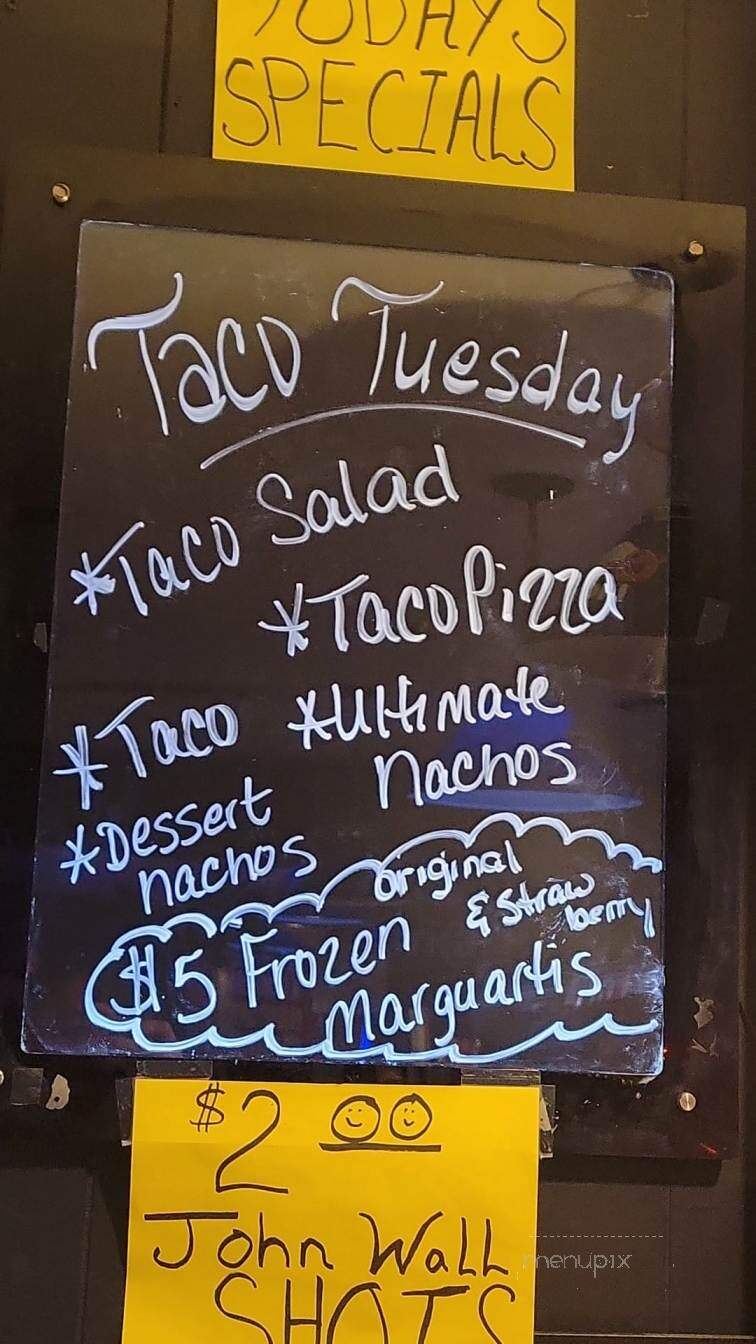 TODAY'S
SPECIALS
Taco Tuesday
*Taco Salad
*Taco Pizza
*Taco
*Ultimate
nachos
*Dessert
nachos
original
& Straw
berry
$5 Frozen
Marguartis
$2 00
John Wall
SHOTS
menupix